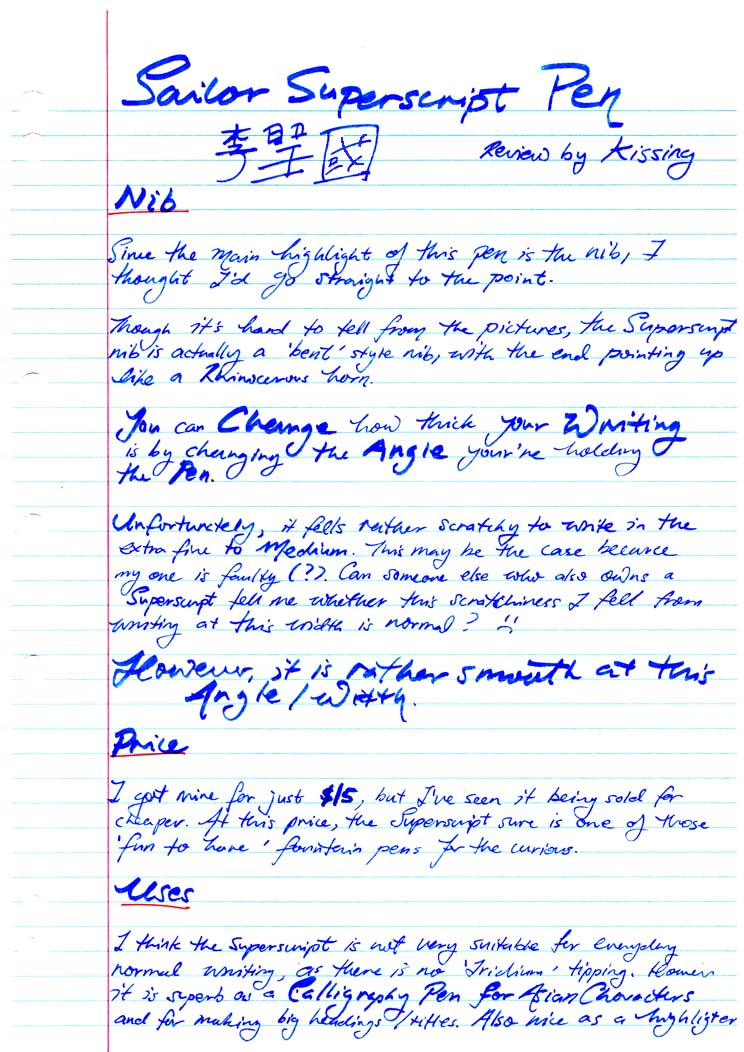 Sailor Superscript Pen
李堲國
Review by Kissing
Nib
Since the main highlight of this pen is the nib, I
thought I'd go straight to the point.
Though it's hard to tell from the pictures, the Superscript
nib is actually a 'bent' style nib, with the end pointing up
like a Rhinocerous horn.
You can Change how thick your Writing
is by changing the Angle your're holding
the Pen.
Unfortunately, it fells rather scratchy to write in the
extra fine to Medium. This may be the case because
my one is faulty (?). Can someone else who also owns a
Superscript tell me whether this scratchiness I fell from
writing at this width is normal?
However, it is rather smooth at this
Angle / Width.
Price
I got mine for just $15, but I've seen it being sold for
cheaper. At this price, the Superscript sure is one of those
'fun to have' fountain pens for the curious.
Uses
I think the Superscript is not very suitable for everyday
normal writing, as there is no 'Iridium' tipping. However
it is superb as a Calligraphy Pen for Asian Characters
and for making big headings / titles. Also nice as a highligter